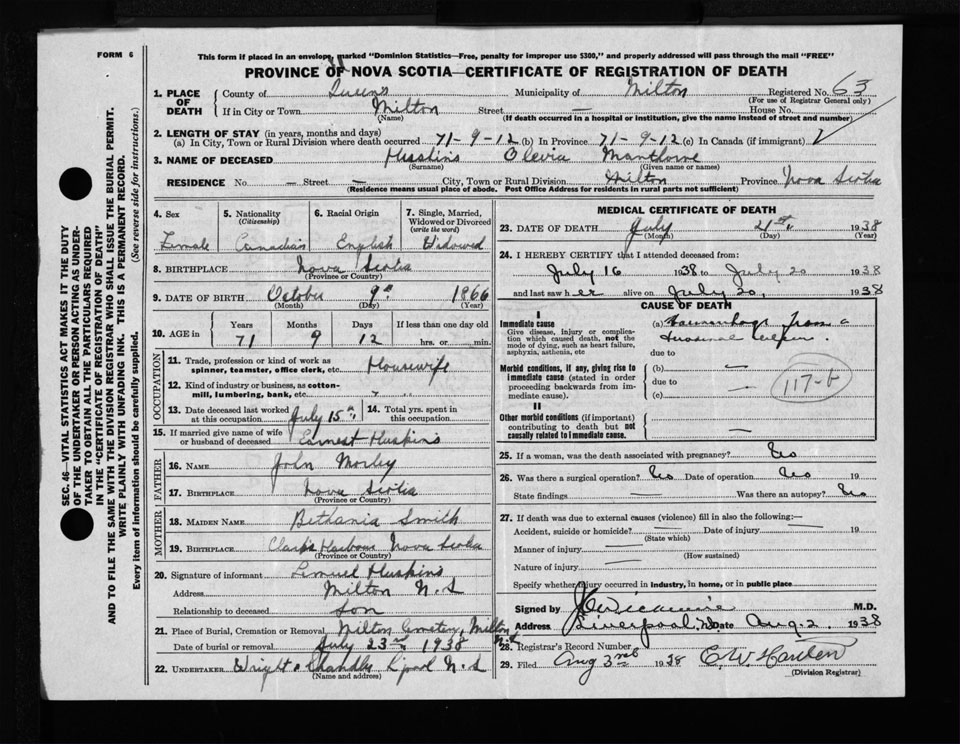 FORM 6
This form if placed in an envelope, marked "Dominion Statistics—Free, penalty for improper use $300," and properly addressed will pass through the mail "FREE"
PROVINCE OF NOVA SCOTIA—CERTIFICATE OF REGISTRATION OF DEATH
1. PLACE OF DEATH County of Queens Municipality of Milton Registered No. 63
(For use of Registrar General only)
If in City or Town Milton Street — House No.
(Name) (If death occurred in a hospital or institution, give the name instead of street and number)
2. LENGTH OF STAY (in years, months and days)
(a) In City, Town or Rural Division where death occurred 71-9-12 (b) In Province 71-9-12 (c) In Canada (if immigrant)
3. NAME OF DECEASED Huskins Olevia
(Surname) (Given name or names)
RESIDENCE No. — Street — City, Town or Rural Division Milton Province Nova Scotia
(Residence means usual place of abode. Post Office Address for residents in rural parts not sufficient)
4. Sex Female
5. Nationality (Citizenship) Canadian
6. Racial Origin English
7. Single, Married, Widowed or Divorced (write the word) Widowed
8. BIRTHPLACE Nova Scotia
(Province or Country)
9. DATE OF BIRTH October 9th 1866
(Month) (Day) (Year)
10. AGE in Years 71 Months 9 Days 12 If less than one day old hrs. or min.
OCCUPATION
11. Trade, profession or kind of work as spinner, teamster, office clerk, etc. Housewife
12. Kind of industry or business, as cotton-mill, lumbering, bank, etc. " "
13. Date deceased last worked at this occupation July 15th
14. Total yrs. spent in this occupation
15. If married give name of wife or husband of deceased Earnest Huskins
FATHER
16. NAME John Morley
17. BIRTHPLACE Nova Scotia
(Province or Country)
MOTHER
18. MAIDEN NAME Bethania Smith
19. BIRTHPLACE Clark's Harbour Nova Scotia
(Province or Country)
20. Signature of informant Lemuel Huskins
Address Milton N.S
Relationship to deceased Son
21. Place of Burial, Cremation or Removal Milton Cemetery, Milton N.S
Date of burial or removal July 23rd 1938
22. UNDERTAKER Wright L'pool N.S
(Name and address)
MEDICAL CERTIFICATE OF DEATH
23. DATE OF DEATH July 21st 1938
(Month) (Day) (Year)
24. I HEREBY CERTIFY that I attended deceased from:
July 16 1938 to July 20 1938
and last saw her alive on July 20, 1938
CAUSE OF DEATH
I
Immediate cause
Give disease, injury or complication which caused death, not the mode of dying, such as heart failure, asphyxia, asthenia, etc
(a) Haemorrhage from a duodenal ulcer.
due to
Morbid conditions, if any, giving rise to immediate cause (stated in order proceeding backwards from immediate cause).
(b) —
due to
(c) —
117-b
II
Other morbid conditions (if important) contributing to death but not causally related to immediate cause.
25. If a woman, was the death associated with pregnancy? No
26. Was there a surgical operation? No Date of operation No 19
State findings — Was there an autopsy? No
27. If death was due to external causes (violence) fill in also the following:—
Accident, suicide or homicide? — Date of injury 19
(State which)
Manner of injury —
(How sustained)
Nature of injury —
Specify whether injury occurred in industry, in home, or in public place
Signed by M.D.
Address Liverpool, N.S. Date Aug. 2. 1938
28. Registrar's Record Number
29. Filed Aug 3rd 1938
(Division Registrar)
SEC. 46—VITAL STATISTICS ACT MAKES IT THE DUTY
OF THE UNDERTAKER OR PERSON ACTING AS UNDERTAKER
TO OBTAIN ALL THE PARTICULARS REQUIRED
IN THE "CERTIFICATE OF REGISTRATION OF DEATH"
AND TO FILE THE SAME WITH THE DIVISION REGISTRAR WHO SHALL ISSUE THE BURIAL PERMIT.
WRITE PLAINLY WITH UNFADING INK. THIS IS A PERMANENT RECORD.
Every item of information should be carefully supplied. (See reverse side for instructions.)